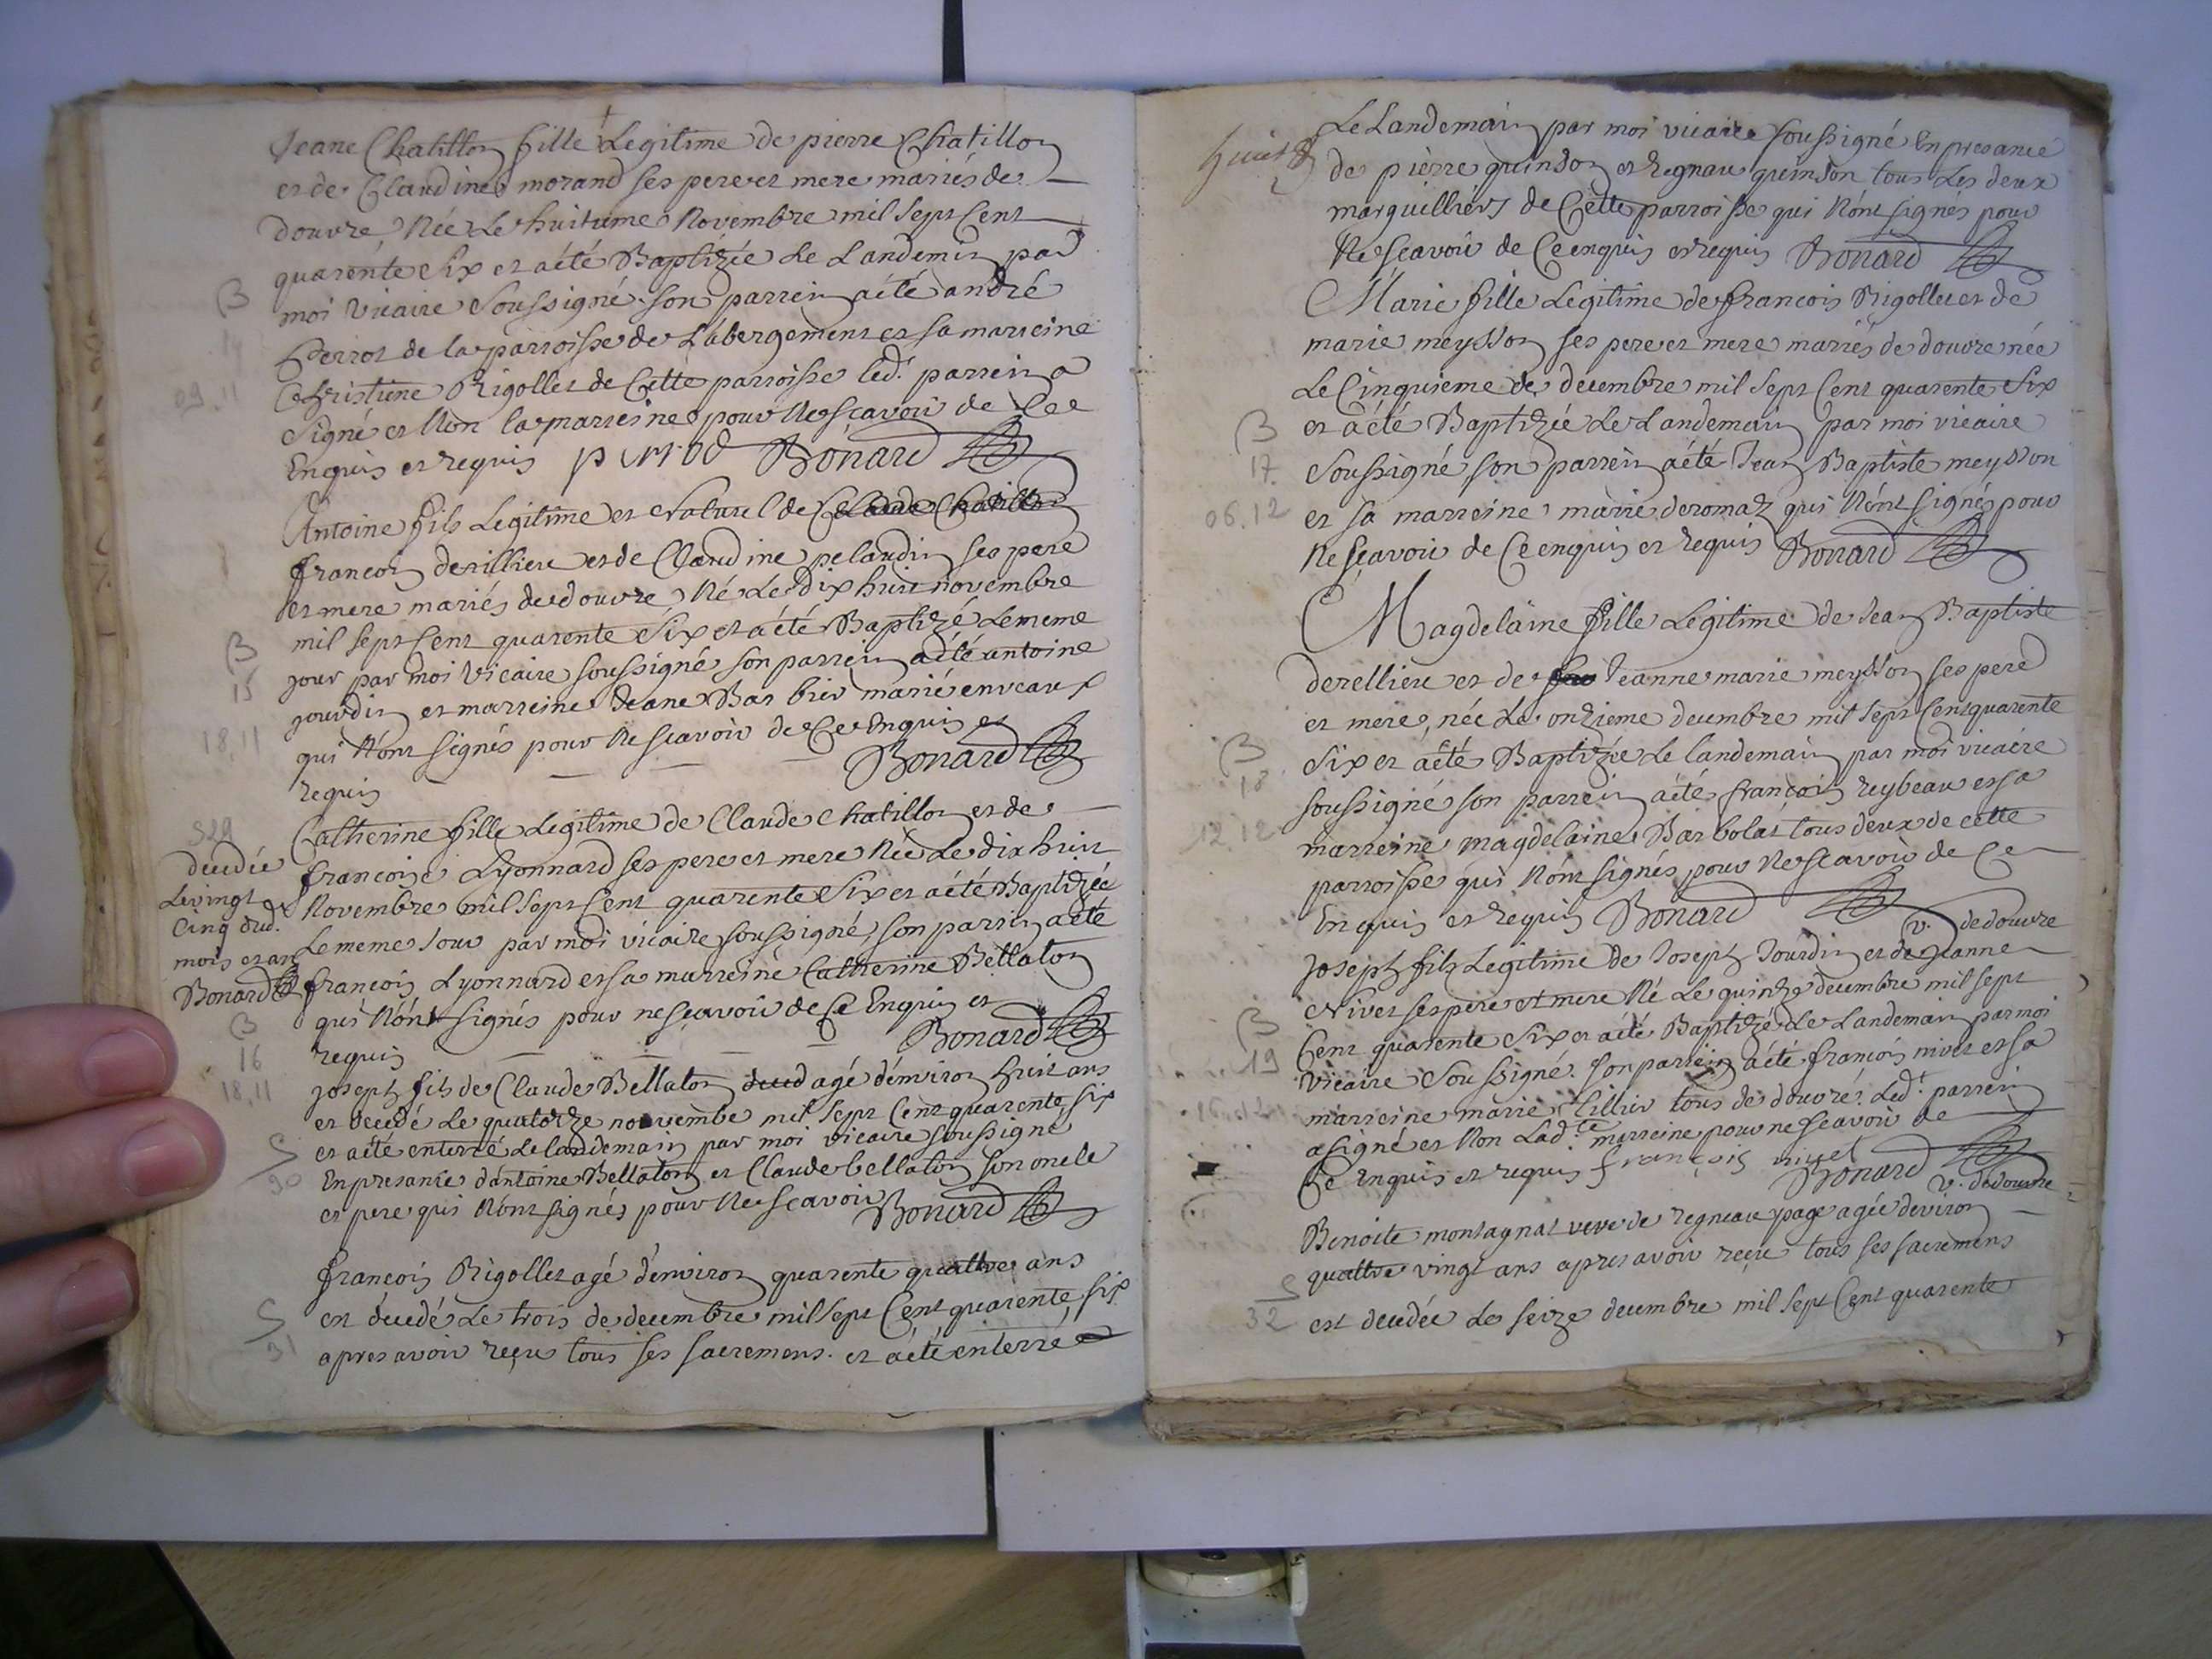 Jeane Chatillon fille Legitime de pierre Chatillon
et de Claudine morand ses pere et mere mariés de
douvre Née Le huitieme Novembre mil sept Cent
quarente Six et aété Baptizée Le Landemin par
moi Vicaire Soussigné. son parrein aété andré
Perrot de la parroisse de L'abergement et sa marreine
Christine Rigollet de Cette parroisse led. parrein a
Signé et Non la marreine pour Ne scavoir de Cee
Enquis et requis perrod Bonard
B
14
09.11
Antoine fils Legitime et Naturel de Claude Chatillon
francois derillieu et de Claudine pelaudin ses pere
et mere mariés de douvre Né Le dix huit novembre
mil sept Cent quarente Six et aété Baptizé Le meme
jour par moi Vicaire soussigné son parrein aété antoine
jourdin et marreine Jeane Bar bier marié enveaux
qui N'ont signés pour Ne scavoir de Ce Enquis et
requis Bonard
B
15
18.11
Catherine fille Legitime de Claude Chatillon et de
francoise Lyonnard ses pere et mere Née Le dix huit
Novembre mil Sept Cent quarente Six et aété Baptizée
Le meme Jour par moi vicaire soussigné, son parrein aété
francois Lyonnard et sa marreine Catherine Bellaton
qui N'ont signés pour ne scavoir de Ce Enquis et
requis Bonard
S29
decedée
Le vingt
Cinq dud.
mois et an
Bonard
B
16
18.11
joseph fils de Claude Bellaton deced agé d'environ huit ans
et decedé Le quatorze novembe mil sept Cent quarente six
et aété enterré Le landemain par moi vicaire soussigne
En presance d'antoine Bellaton et Claude bellaton son oncle
et pere qui N'ont signés pour Ne scavoir Bonard
S
30
francois Rigollet agé d'environ quarente quattre ans
est decedé Le trois de decembre mil sept Cent quarente six
apres avoir reçu tous ses sacremens. et aété enterré
S
31
Le Landemain par moi vicaire soussigné En presance
de pierre quinson et Regnau quinson tous Les deux
marguilliers de Cette parroisse qui N'ont signés pour
Ne scavoir de Ce enquis et requis Bonard
Marie fille Legitime de francois Rigollet et de
marie meysson ses pere et mere mariés de douvre née
Le Cinquieme de decembre mil sept Cent quarente Six
et aété Baptizée Le Landemain par moi vicaire
Soussigné son parrein aété Jean Baptiste meysson
et sa marreine marie deromaz qui N'ont signés pour
Ne sçavoir de Ce enquis et requis Bonard
B
17
06.12
Magdelaine fille Legitime de Jean Baptiste
derellieu et de Jeanne marie meysson ses pere
et mere, née Le onzieme decembre mil sept Cent quarente
Six et aété Baptizée Le landemain par moi vicaire
soussigné son parrein aété francois reybeau et sa
marreine magdelaine Bar bolat tous deux de cette
parroisse qui N'ont signés pour Ne scavoir de Ce
Enquis et requis Bonard
B
18
12.12
v. de douvre
Joseph fils Legitime de Joseph Jourdin et de Jeanne
Nivet ses pere et mere Né Le quinze decembre mil sept
Cent quarente Six et aété Baptizé Le Landemain par moi
vicaire Soussigné. son parrein aété françois nivet et sa
marreine marie Tillier tous de douvre. Led.t parrein
a signé et Non Lad.te marreine pour ne scavoir de
Ce Enquis et requis françois nivet Bonard
B
19
v. de douvre
Benoite montagnat veve de regneau page agée deviron
quattre vingt ans apres avoir reçu tous ses sacremens
est decedée Le seize decembre mil sept Cent quarente
S
32